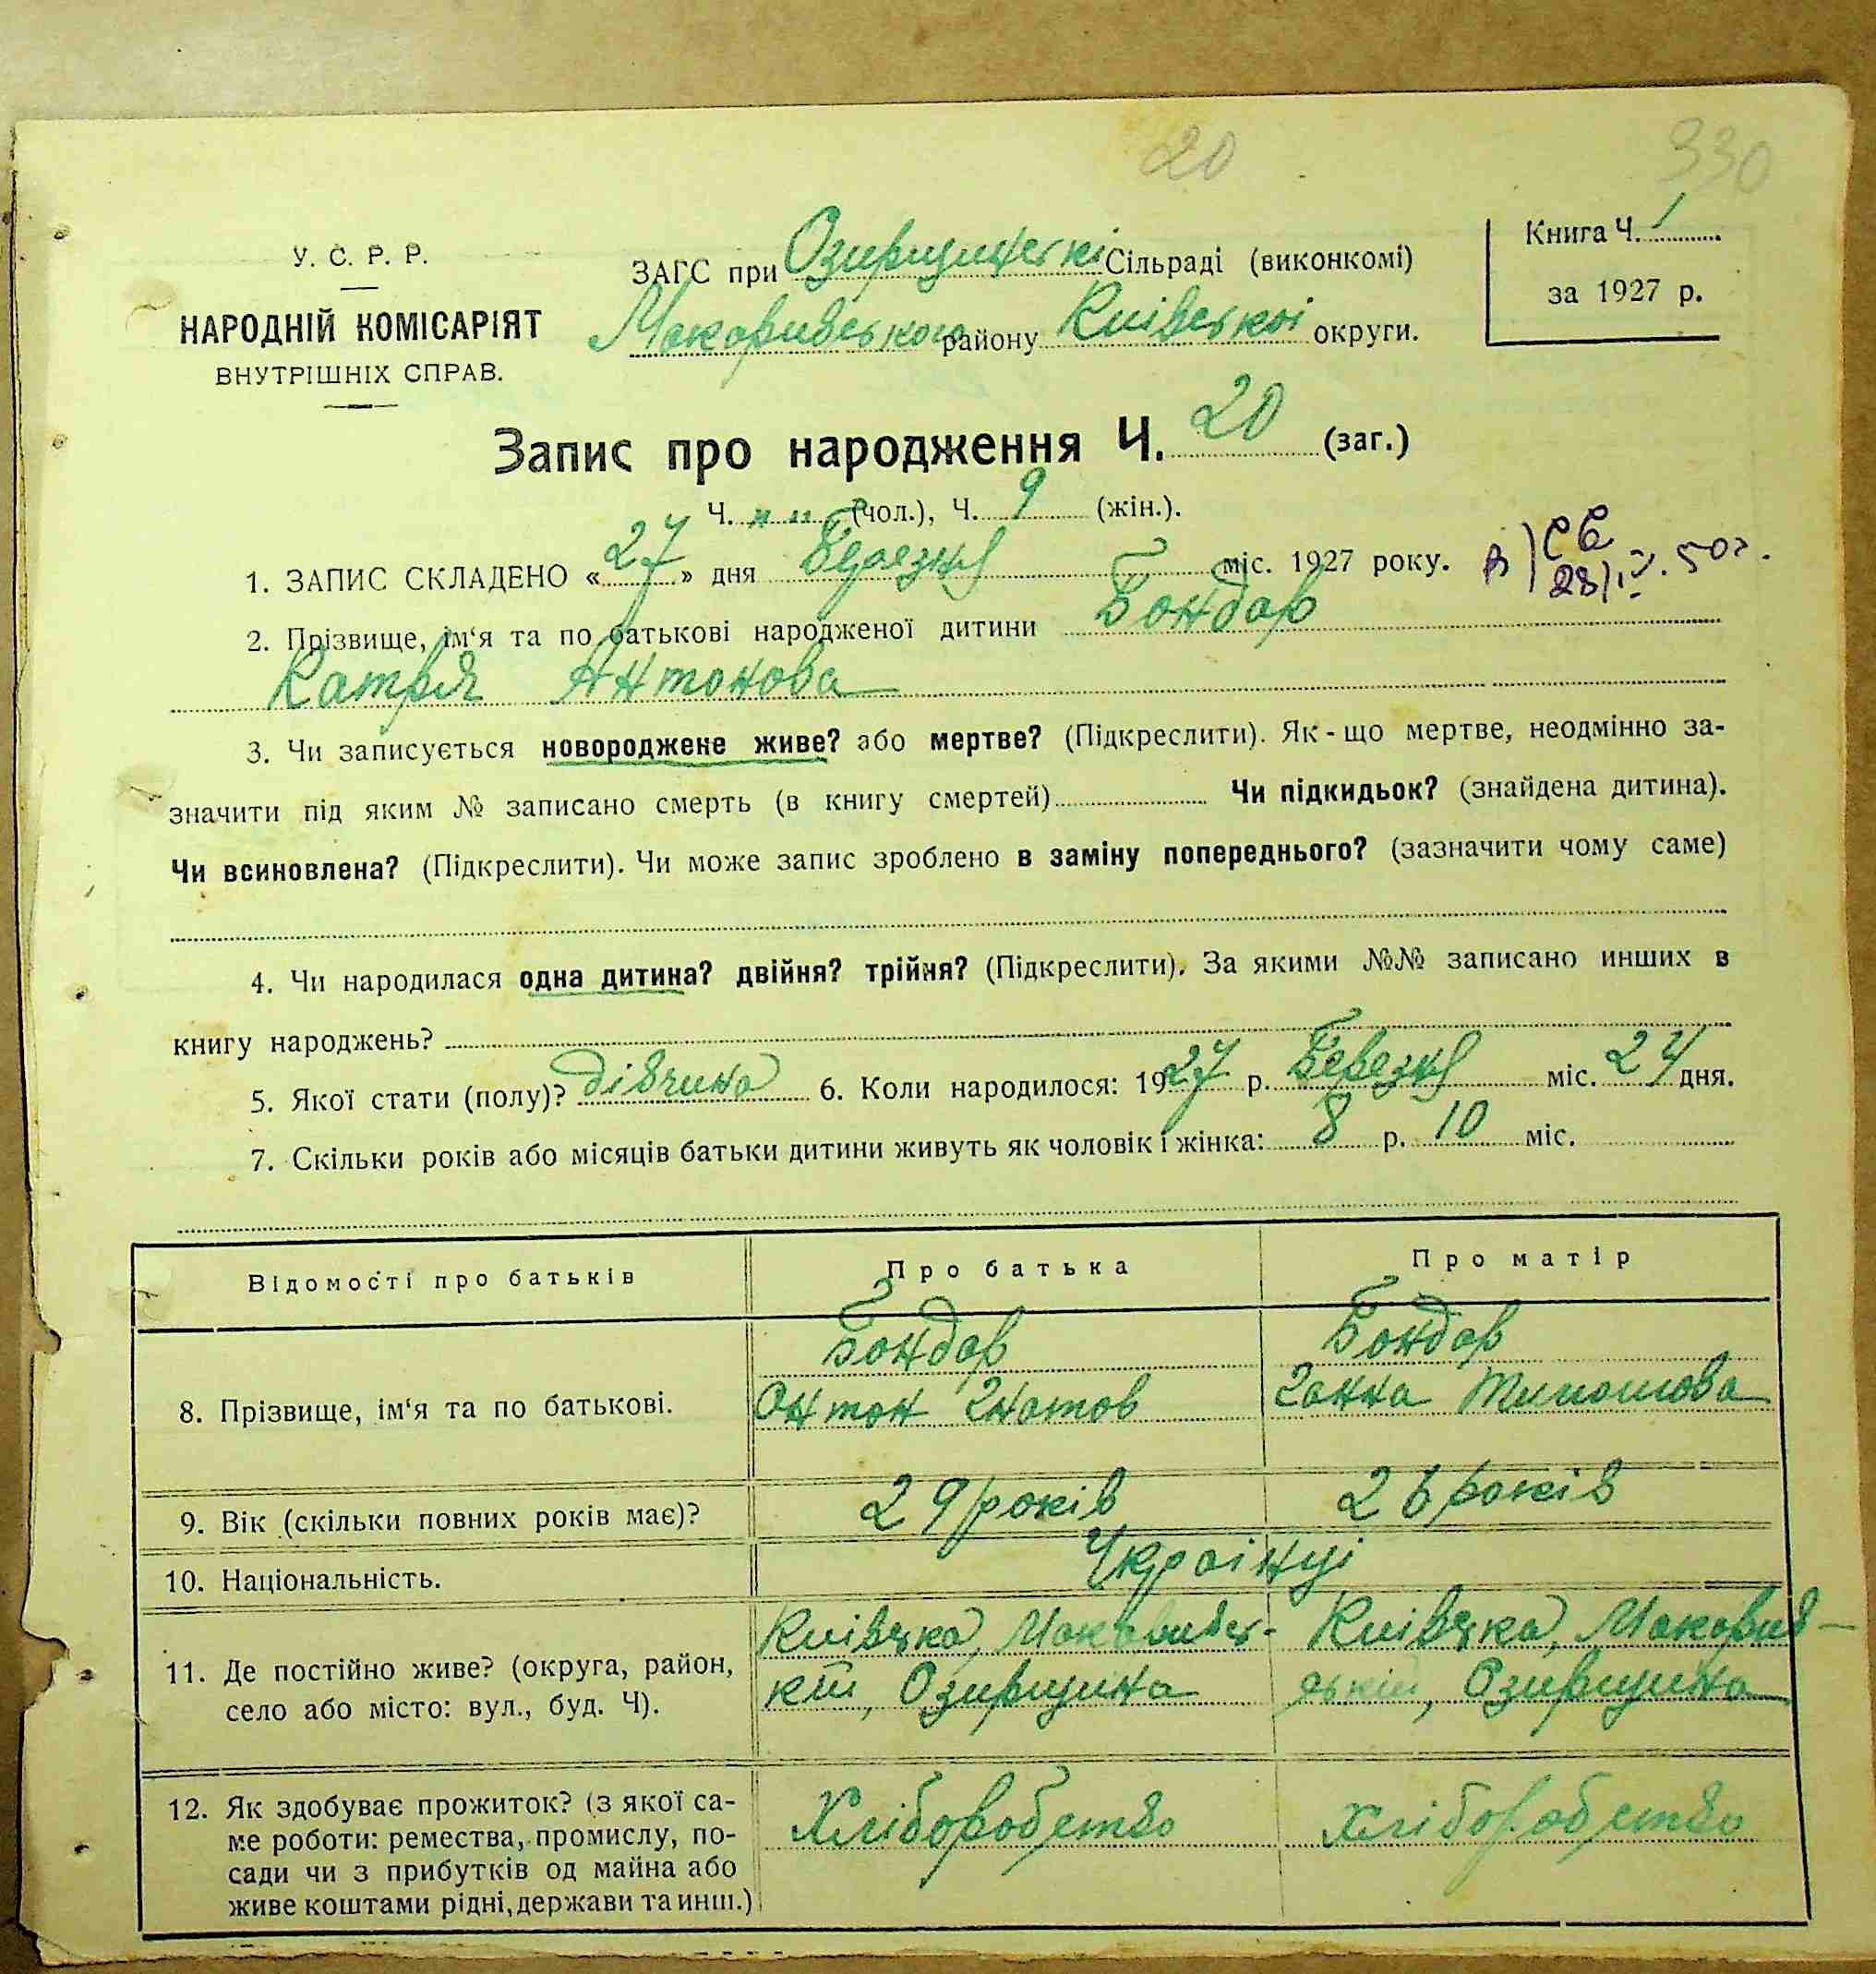 20 330
У. С. Р. Р.
НАРОДНІЙ КОМІСАРІЯТ
ВНУТРІШНІХ СПРАВ.
ЗАГС при Озирщинські Сільраді (виконкомі)
Макаривського району Київськоі округи.
Книга Ч. 1
за 1927 р.
Запис про народження Ч. 20 (заг.)
Ч. " " (чол.), Ч. 9 (жін.).
1. ЗАПИС СКЛАДЕНО «27» дня Березня міс. 1927 року.
2. Прізвище, ім'я та по батькові народженої дитини Бондар
Катря Антонова
3. Чи записується новороджене живе? або мертве? (Підкреслити). Як-що мертве, неодмінно за-
значити під яким № записано смерть (в книгу смертей) Чи підкидьок? (знайдена дитина).
Чи всиновлена? (Підкреслити). Чи може запис зроблено в заміну попереднього? (зазначити чому саме)
4. Чи народилася одна дитина? двійня? трійня? (Підкреслити). За якими №№ записано инших в
книгу народжень?
5. Якої стати (полу)? дівчина 6. Коли народилося: 1927 р. Березня міс. 24 дня.
7. Скільки років або місяців батьки дитини живуть як чоловік і жінка: 8 р. 10 міс.
Відомості про батьків Про батька Про матір
8. Прізвище, ім'я та по батькові.
Бондар
Антон Гнатов
Бондар
Ганна Тимошова
9. Вік (скільки повних років має)? 29 років 26 років
10. Національність. Українці
11. Де постійно живе? (округа, район,
село або місто: вул., буд. Ч).
Київська, Макаривсь-
кий, Озирщина
Київська, Макарив-
ський, Озирщина
12. Як здобуває прожиток? (з якої са-
ме роботи: ремества, промислу, по-
сади чи з прибутків од майна або
живе коштами рідні, держави та инш.)
Хліборобство
Хліборобство